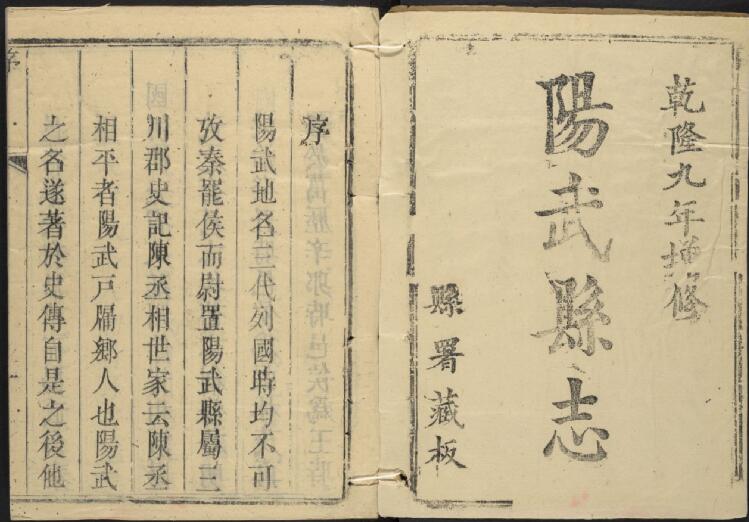 乾隆九年增修
陽武縣志
縣署藏板
序
陽武地名三代列國時均不可
攷秦罷侯而尉置陽武縣屬三
川郡史記陳丞相世家云陳丞
相平者陽武戶牖鄉人也陽武
之名遂著於史傳自是之後他